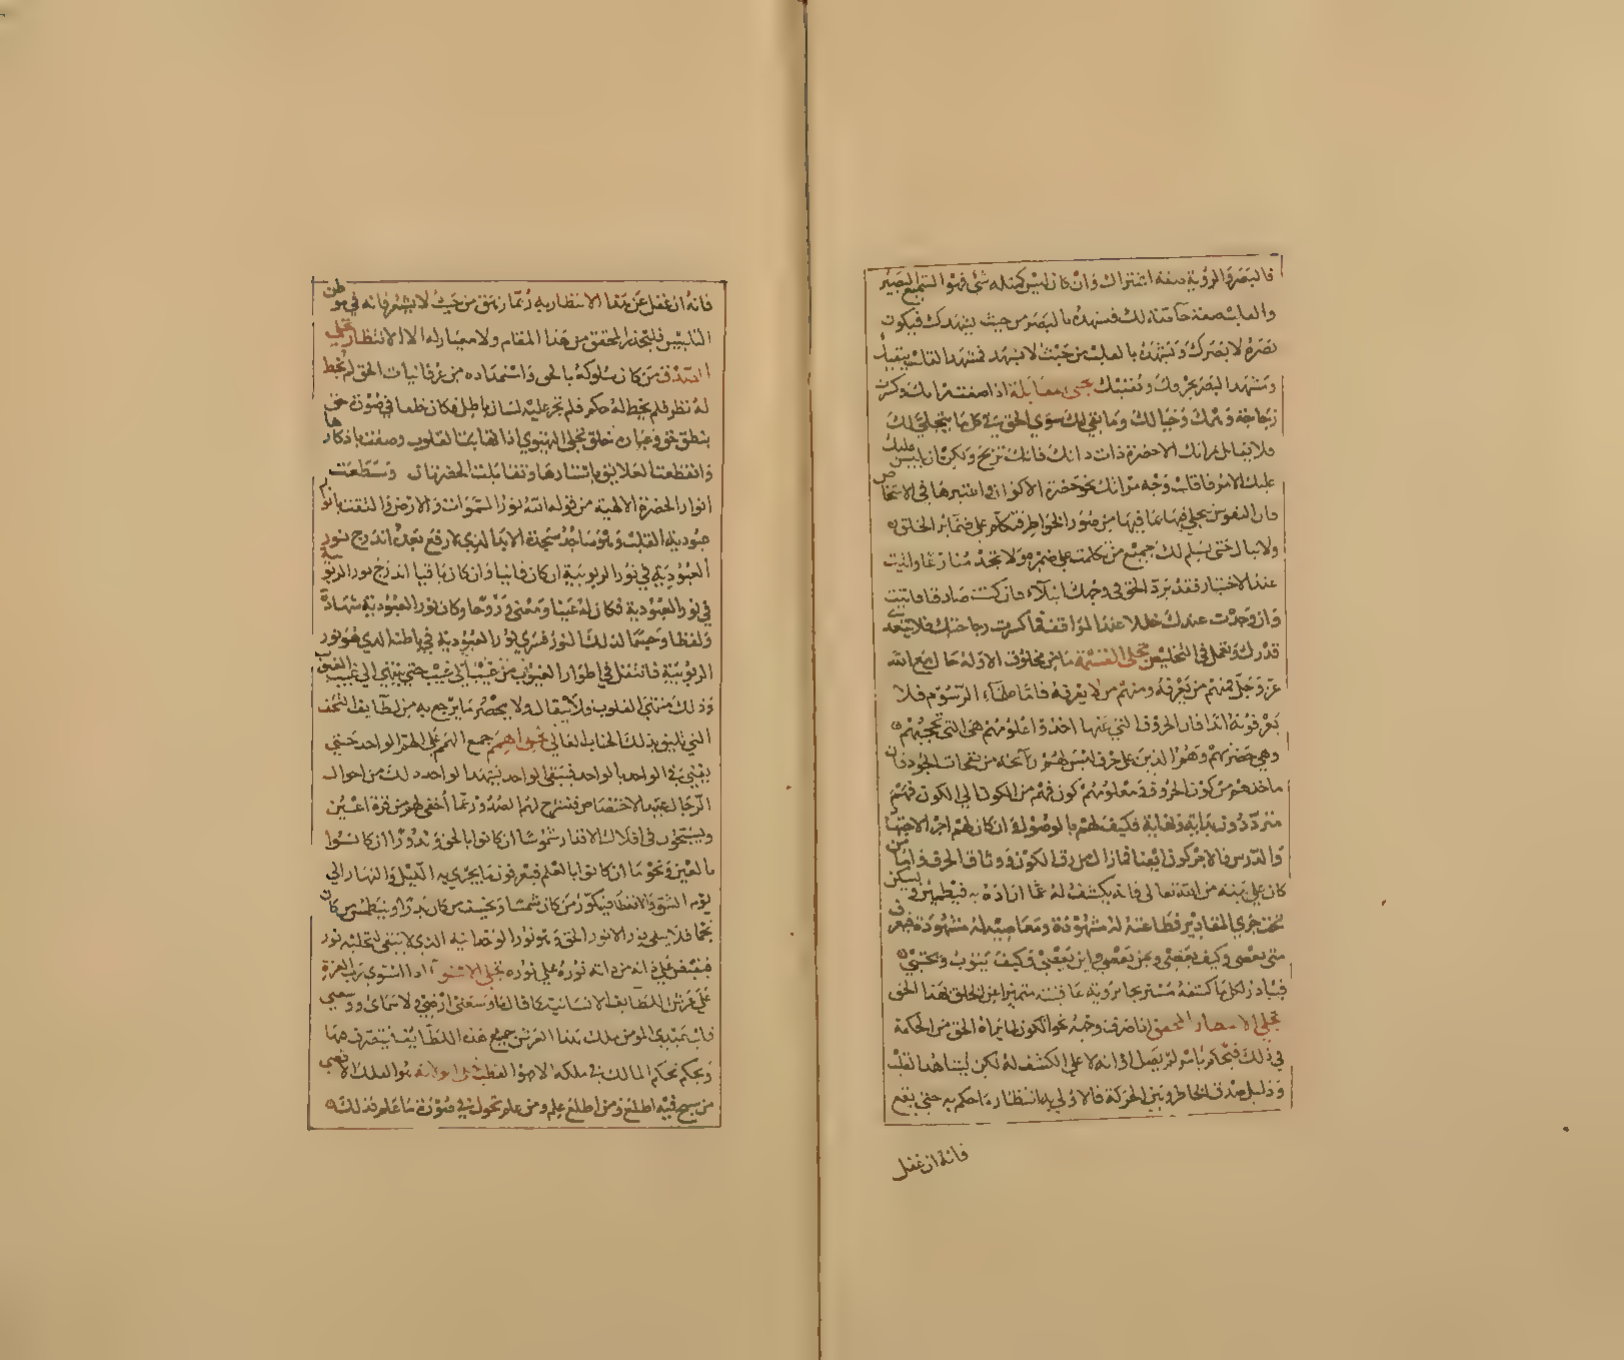 فالبصر والرؤية صفة اشتراك وان كان ليس كمثله شئ فهو السميع البصير
والقلب صفة خاصة لك فتشهده بالبصر من حيث يشهدك فيكون
بصره لا بصرك وتشهده بالقلب من حيث لا يشهد فمشهد القلب يبقيك
ومشهد البصر يحرقك ويفنيك تجلى المقابلة اذا صفت مرآتك وكسرت
زجاجة وهمك وخيالك وما بقي لك سوى الحق في كل ما يتجلى لك
فلا يقابل بمرآتك الا حضرة ذات ذاتك فانك تربح ولكن ان تلبس عليك
عليك الامر فاقلب وجه مرآتك نحو حضرة الاكوان واعتبرها في الاشخاص
فان النفوس يتجلى فيها بما فيها من صور الخواطر فتكلم على ضمائر الخلق
ولا تبال حتى يسلم لك جميع من تكلمت على ضميره ولا تجد منازعا واثبت
عند الاختبار فقد يرد الحق في وجهك ابتلاء فان كنت صادقا فاثبت
وان وجدت عندك خللا عند المواقف فما كسرت زجاجتك فلا تتعدى
قدرك وتعمل في التخليص تجلى القسمة ما من مخلوق الا وله حال مع الله
عز وجل فمنهم من يعرفه ومنهم من لا يعرفه فاما علماء الرسوم فلا
يعرفونه ابدا فان الحروف التي عنها اخذوا علومهم هي التي تحجبهم
وهي حضرتهم وهم الذين على حرف ليس لهم رائحة من نفحات الجود فان
ماخذهم من كون الحروف ومعلومهم كون فهم من الكون الى الكون فهم
مترددون بداية ونهاية فكيف لهم بالوصول وان كان لهم اجر الاجتها
والدرس فالاجر كون ايضا فما زال من رق الكون ووثاق الحرف واما من
كان على بينة من الله تعالى فانه يكشف له عما اراده به فيطمئن ويسكن
تحت جري المقادير فطاعته له مشهودة ومعاصيه له مشهودة فيعرف
متى يعصي وكيف يعصي ومن يعصي واين يعصي وكيف يتوب ويجتبى
فيبادر لكل ما كشف له مستريحا برؤية عاقبته متميزا عن الخلق بهذا الحق
تجلى الانتظار المحقق اذا صرف وجهه نحو الكون لما يراه الحق من الحكمة
في ذلك فيحكم بامر لم يصل اوانه لا على الكشف له لكن يشاهد القلب
ودليل صدق الخاطر وبين الحركة فالاولى به انتظار ما حكم به حتى يقع
فانه ان غفل
فانه ان غفل عن هذا الانتظار به ربما زهق من حيث لا يشعر فانه في موطن
التلبيس فليحذر المحقق من هذا المقام ولا معيار له الا الانتظار تجلي
الصدق من كان سلوكه بالحق واستمداده من عرفانيات الحق لم يخط
له نظر فلم يخط له حكم فلم تجر عليه لسان باطل فكان خلعا في صورة حق
ينطق حق وعبارة خلق تجلى التهيؤ اذا تهيات القلوب وصفت باذكارها
وانقطعت العلايق باستارها وتقابلت الحضرتان وسطعت
انوار الحضرة الالهية من قوله الله نور السموات والارض والتقت بانوار
عبودية القلب وهو ساجد سجدة الابد الذي لا رفع بعده اندرج نور
العبودية في نور الربوبية ان كان فانيا وان كان باقيا اندرج نور الربوبية
في نور العبودية فكان له غيبا ومعنى وروحا وكان نور العبودية شهادة
ولفظا وجسما لذلك النور فسرى نور العبودية في باطنه الذي هو نور
الربوبية فانتقل في اطوار الغيوب من غيب الى غيب حتى ينتهي الى غيب الغيوب
وذلك منتهى القلوب ولا يقال ولا يحصر ما يرجع به من لطايف التحف
التي تليق بذلك الجناب العالي تجلى الهمم جمع الهمم على الهم الواحد حتى
يفنى في الواحد بالواحد فيبقى الواحد يشهد الواحد ذلك من احوال
الرجال عبيد الاختصاص فتشرح لهم الصدور عما أخفى لهم من قرة اعين
ويسبحون في افلاك الاقدار شموسا ان كانوا بالحق وبدورا ان كانوا
بالعين ونجوما ان كانوا بالعلم فيعرفون ما يجري به الليل والنهار الى
يوم الشق والانفطار فيكور من كان شمسا ويخسف من كان بدرا ويطمس من كان
نجما فلا يبقى نور الا نور الحق وهو نور الوحدانية الذي لا يبقى لتجليه نور
فيفيض على ذاته من ذاته نوره على نوره تجلى الاستواء اذا استوى رب العزة
على عرش اللطايف الانسانية كما قال ما وسعني ارضي ولا سمائى ووسعني
قلب عبدي المومن ملك هذا العرش جميع هذه اللطايف فيتصرف فيها
ويحكم بحكم المالك في ملكه الا هو القطب تجلى الولاية هو الفلك الاقصى
من سبح فيه اطلع ومن اطلع علم ومن علم تحول في صورة ما علم فذلك